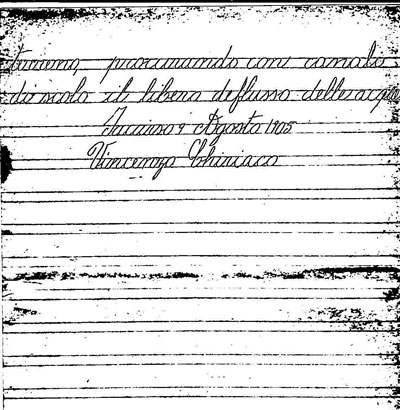 terreno, procurando con canali
di scolo il libero deflusso delle acque
9 Agosto 1905
Vincenzo Chiriaco